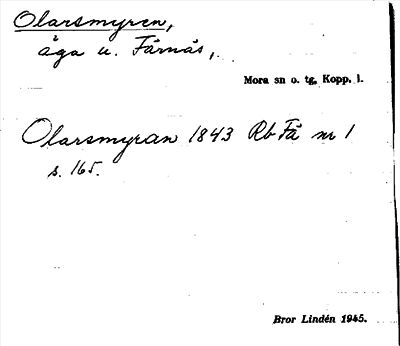 Olarsmyren,
äga u. Färnäs,
Mora sn o. tg, Kopp. l.
Olarsmyran 1843 Rb Få nr 1
s. 165.
Bror Lindén 1945.